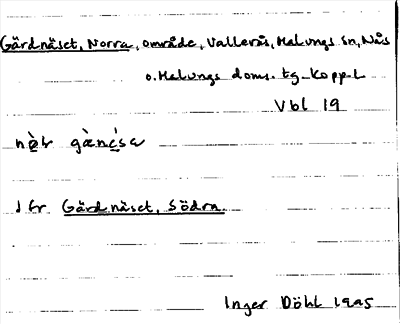 Gärdnäset, Norra, område, Vallerås, Malungs sn, Nås
o. Malungs doms. tg. Kopp. L
Vbl 19
Jfr Gärdnäset, Södra.
Inger Döhl 1995